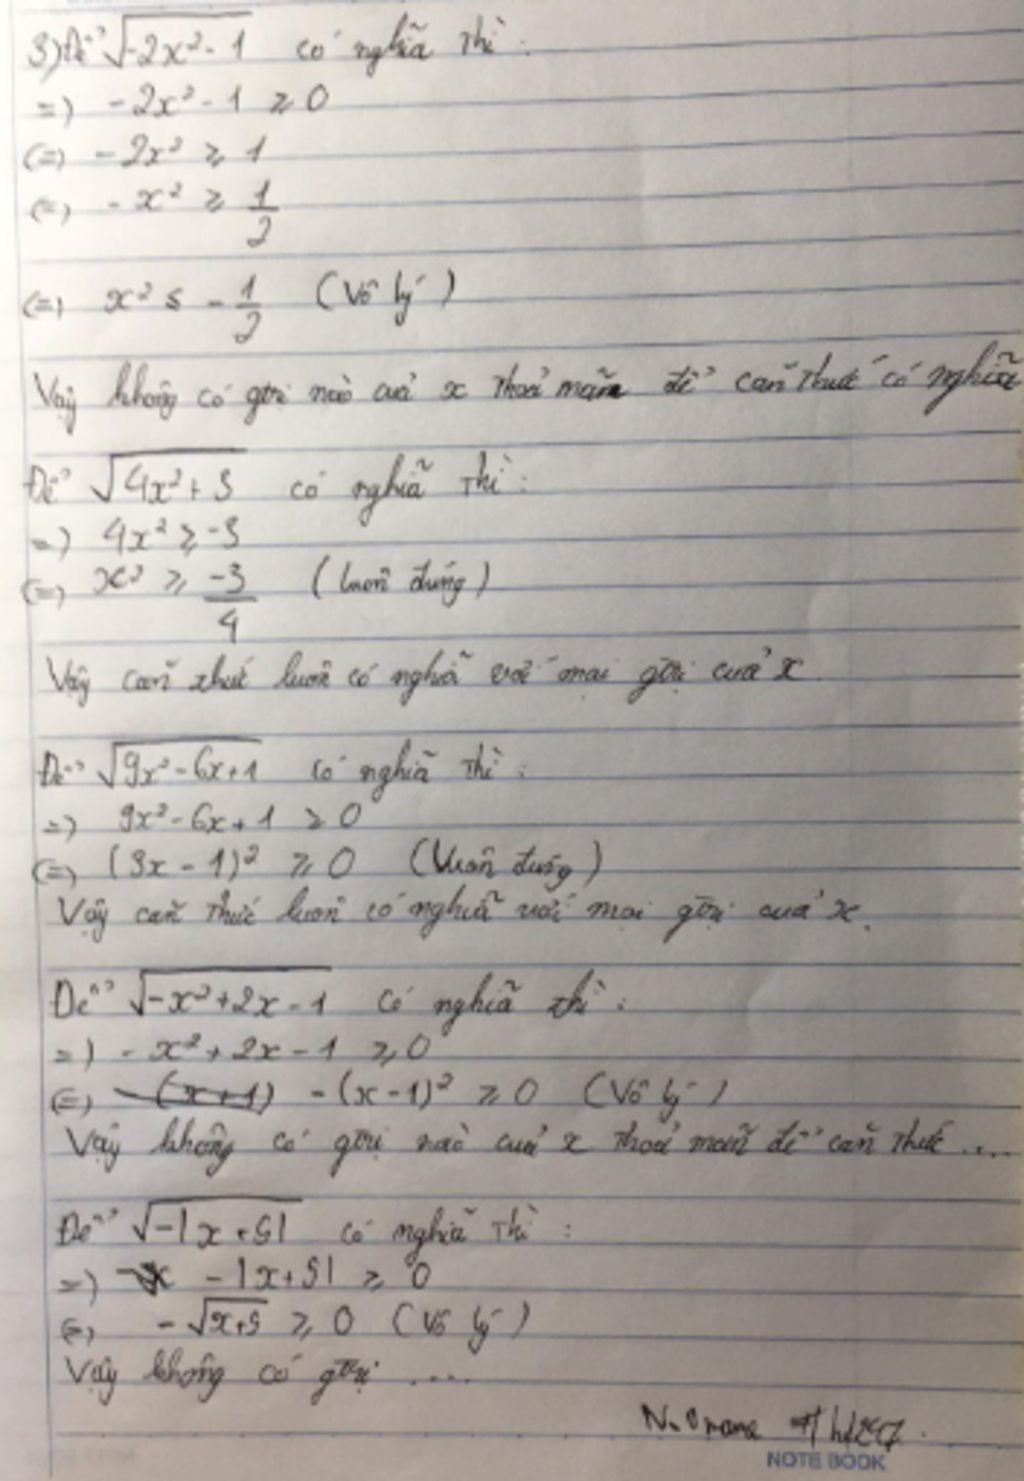 3) Để √-2x²-1 có nghĩa thì:
=) -2x²-1 ≥ 0
(=) -2x² ≥ 1
(=) -x² ≥ 1/2
(=) x² ≤ -1/2 (Vô lý)
Vậy không có gtrị nào của x thoả mãn để căn thức có nghĩa
Để √4x²+3 có nghĩa thì:
=) 4x² ≥ -3
(=) x² ≥ -3/4 (luôn đúng)
Vậy căn thức luôn có nghĩa với mọi gtrị của x.
Để √9x²-6x+1 có nghĩa thì:
=) 9x²-6x+1 ≥ 0
(=) (3x-1)² ≥ 0 (luôn đúng)
Vậy căn thức luôn có nghĩa với mọi gtrị của x.
Để √-x²+2x-1 có nghĩa thì:
=) -x²+2x-1 ≥ 0
(=) -(x-1)² ≥ 0 (Vô lý)
Vậy không có gtrị nào của x thoả mãn để căn thức ....
Để √-|x+5| có nghĩa thì:
=) -|x+5| ≥ 0
(=) -√x+5 ≥ 0 (Vô lý)
Vậy không có gtrị ....
NOTE BOOK